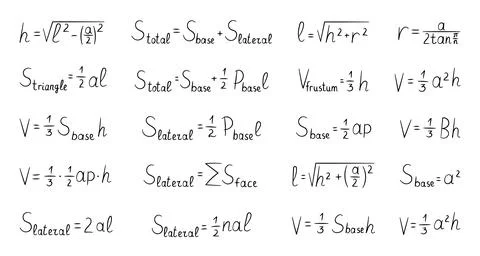 h = √(l² - (a/2)²)   S_total = S_base + S_lateral   l = √(h² + r²)   r = a/(2tan π/n)
S_triangle = 1/2 al   S_total = S_base + 1/2 P_base l   V_frustum = 1/3 h   V = 1/3 a² h
V = 1/3 S_base h   S_lateral = 1/2 P_base l   S_base = 1/2 ap   V = 1/3 Bh
V = 1/3 · 1/2 ap · h   S_lateral = ∑ S_face   l = √(h² + (a/2)²)   S_base = a²
S_lateral = 2al   S_lateral = 1/2 nal   V = 1/3 S_base h   V = 1/3 a² h